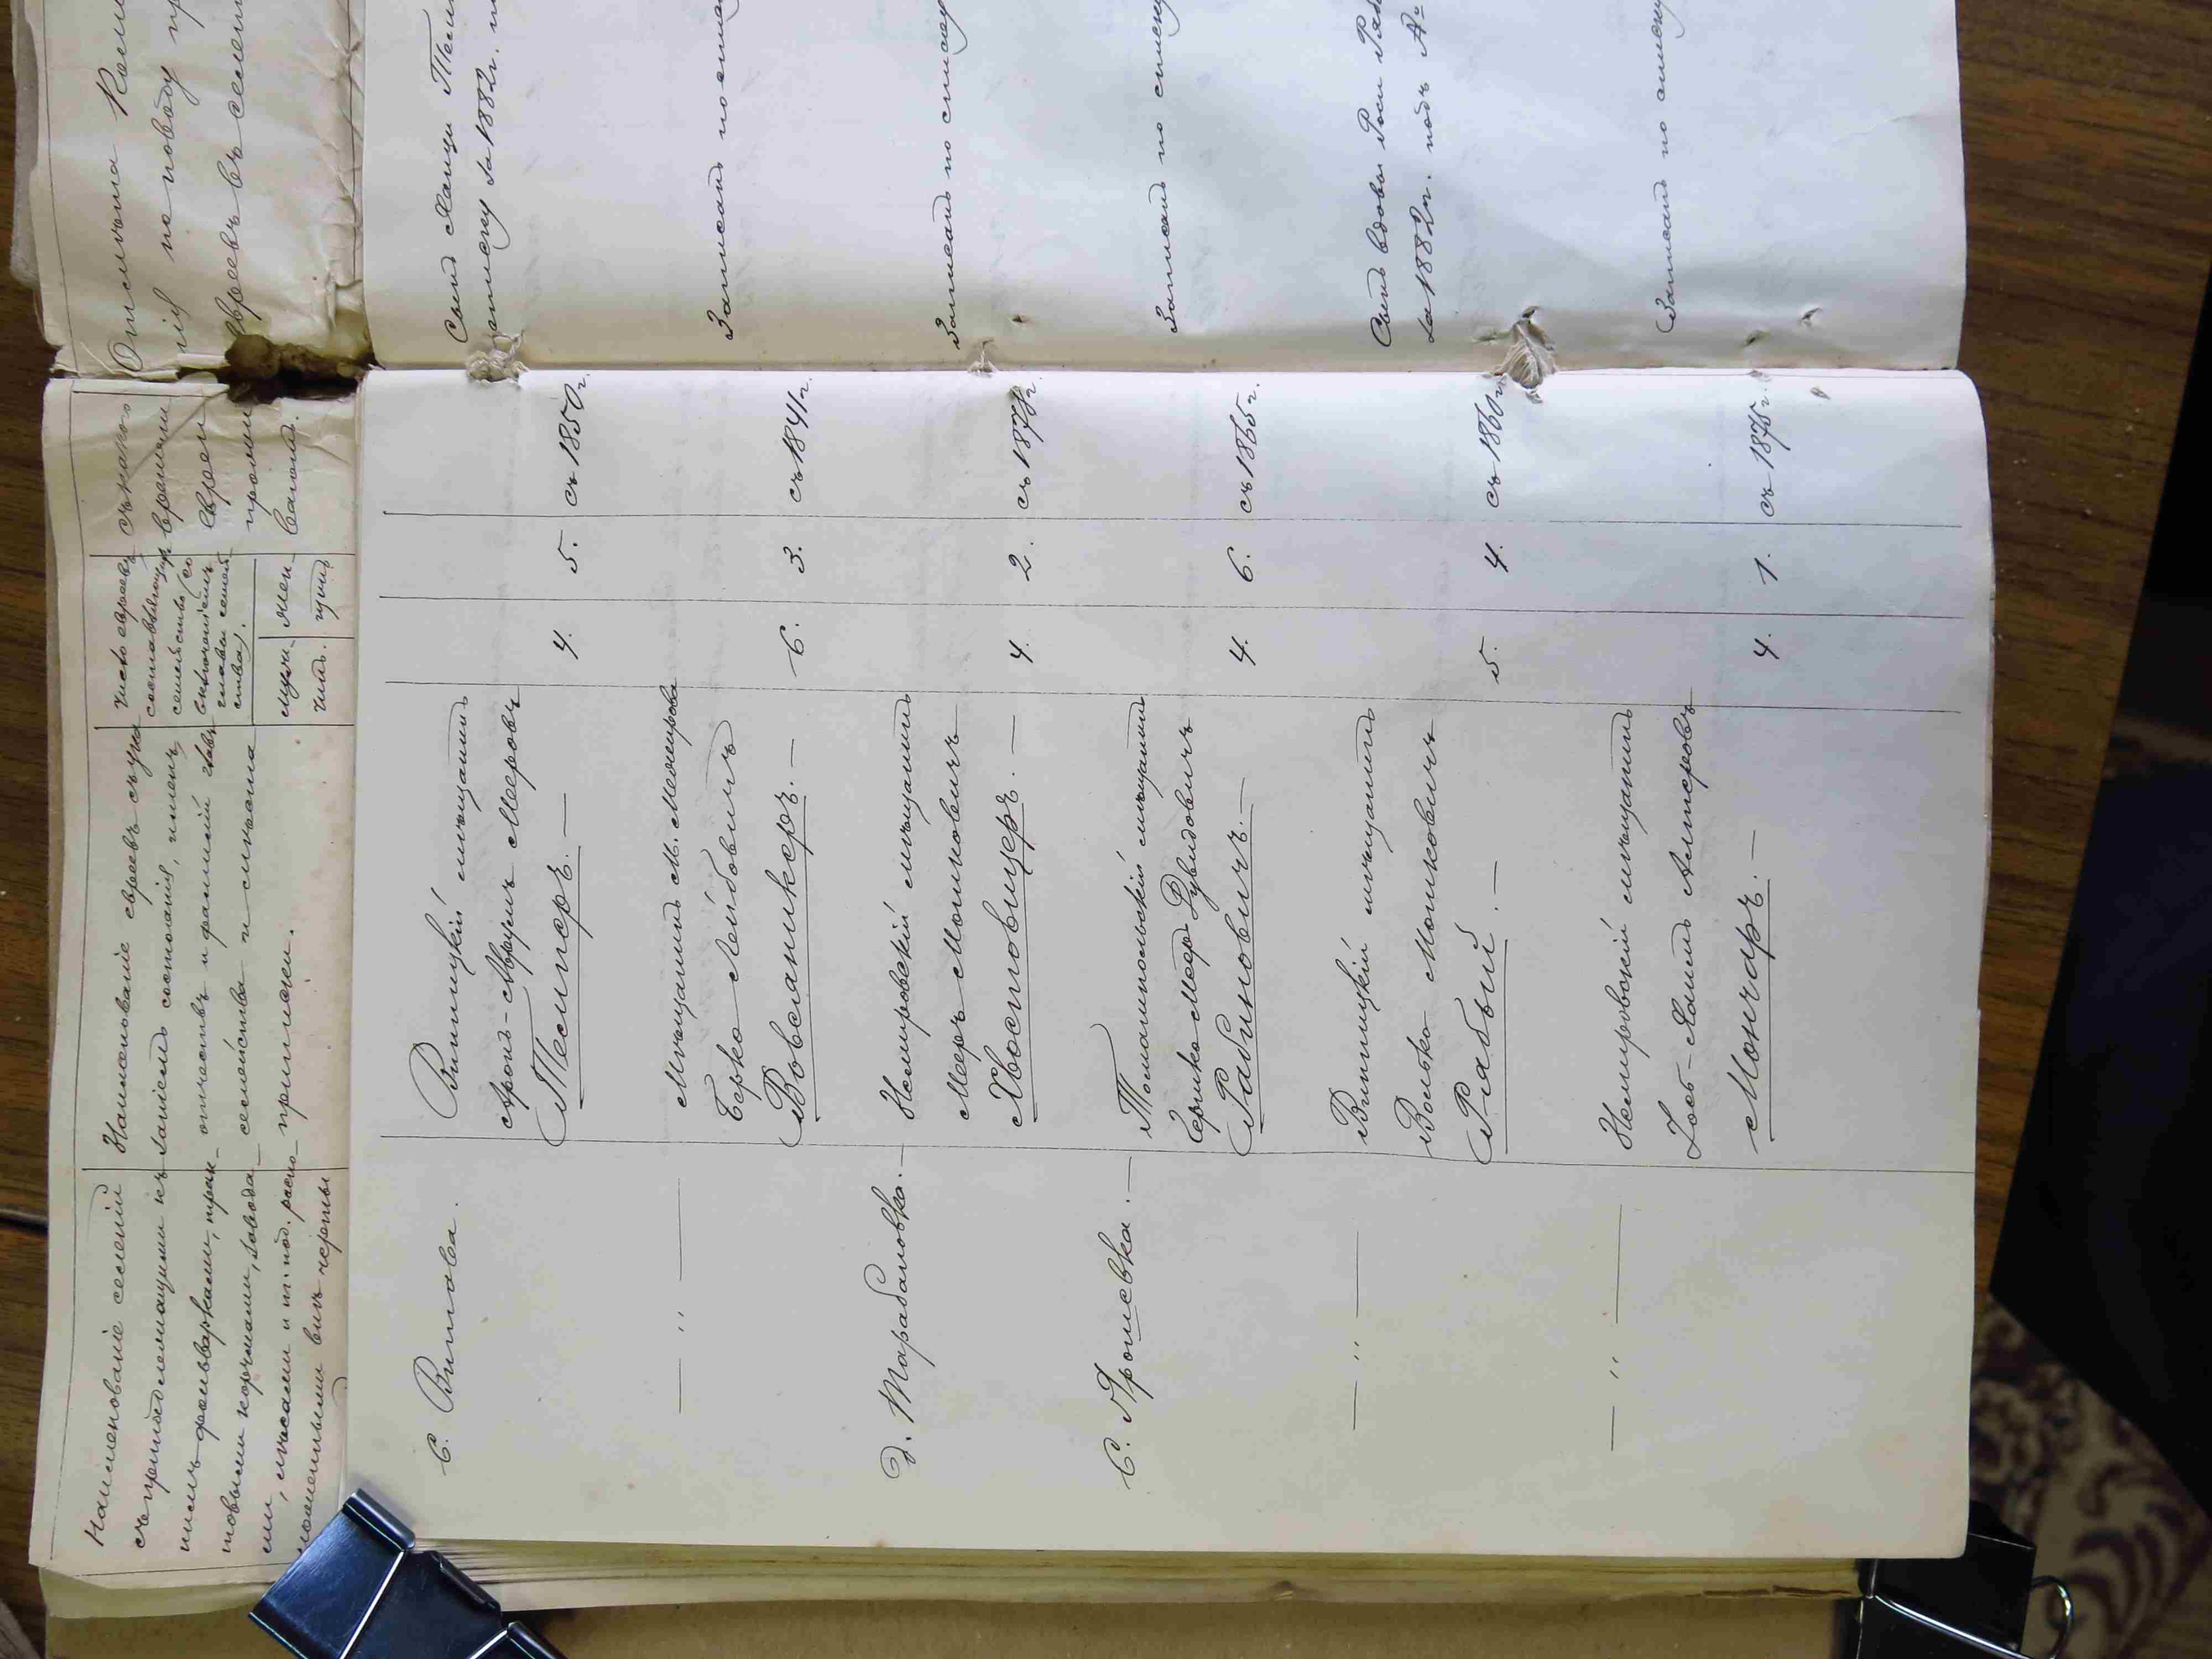 Наименованіе селеній
съ принадлежащими къ
нимъ фольварками, трак-
товыми корчмами, завода-
ми, лѣсами и т. под. распо-
ложенными внѣ черты
Наименованіе евреевъ съ ука
заніемъ состоянія, именъ,
отчествъ и фамилій главъ
семейства и съ какого
времени.
Число евреевъ
составляющихъ
семейство (со
включеніемъ
главы семей
ства).
мужч-
инъ.
жен-
щинъ
съ какого
времени
еврей
прожи
ваетъ.
Отмѣтка
по поводу
евреевъ въ селені
С. Винтовка.
Винницкій мѣщанинъ
Аронъ-Аврумъ Мееровъ
Теплеръ. —
4.
5.
съ 1850 г.
Сынъ
списку за 1882 г.
— " —
Мѣщанинъ м.
Берко Лейбовичъ
Вовсаникеръ. —
6.
3.
съ 1841 г.
Записанъ по
Д. Тарабановка. —
Немировскій мѣщанинъ
Мееръ Мошковичъ
Хвостовицеръ. —
4.
2.
съ 187
Записанъ по списку
С. Ярошевка. —
Томашпольскій мѣщанинъ
Гершко-Меер Рувидовичъ
Рабиновичъ. —
4.
6.
съ 1865 г.
Записанъ по списку
— " —
Винницкій мѣщанинъ
Волько Мошковичъ
Рабый. —
5.
4.
съ 1860 г.
Сынъ вдовы Роси Ряб
за 1882 г. подъ №
— " —
Немировскій мѣщанинъ
Зось-Хаимъ Алтеровъ
Мончаръ. —
4.
1.
съ 1875 г.
Записанъ по списку